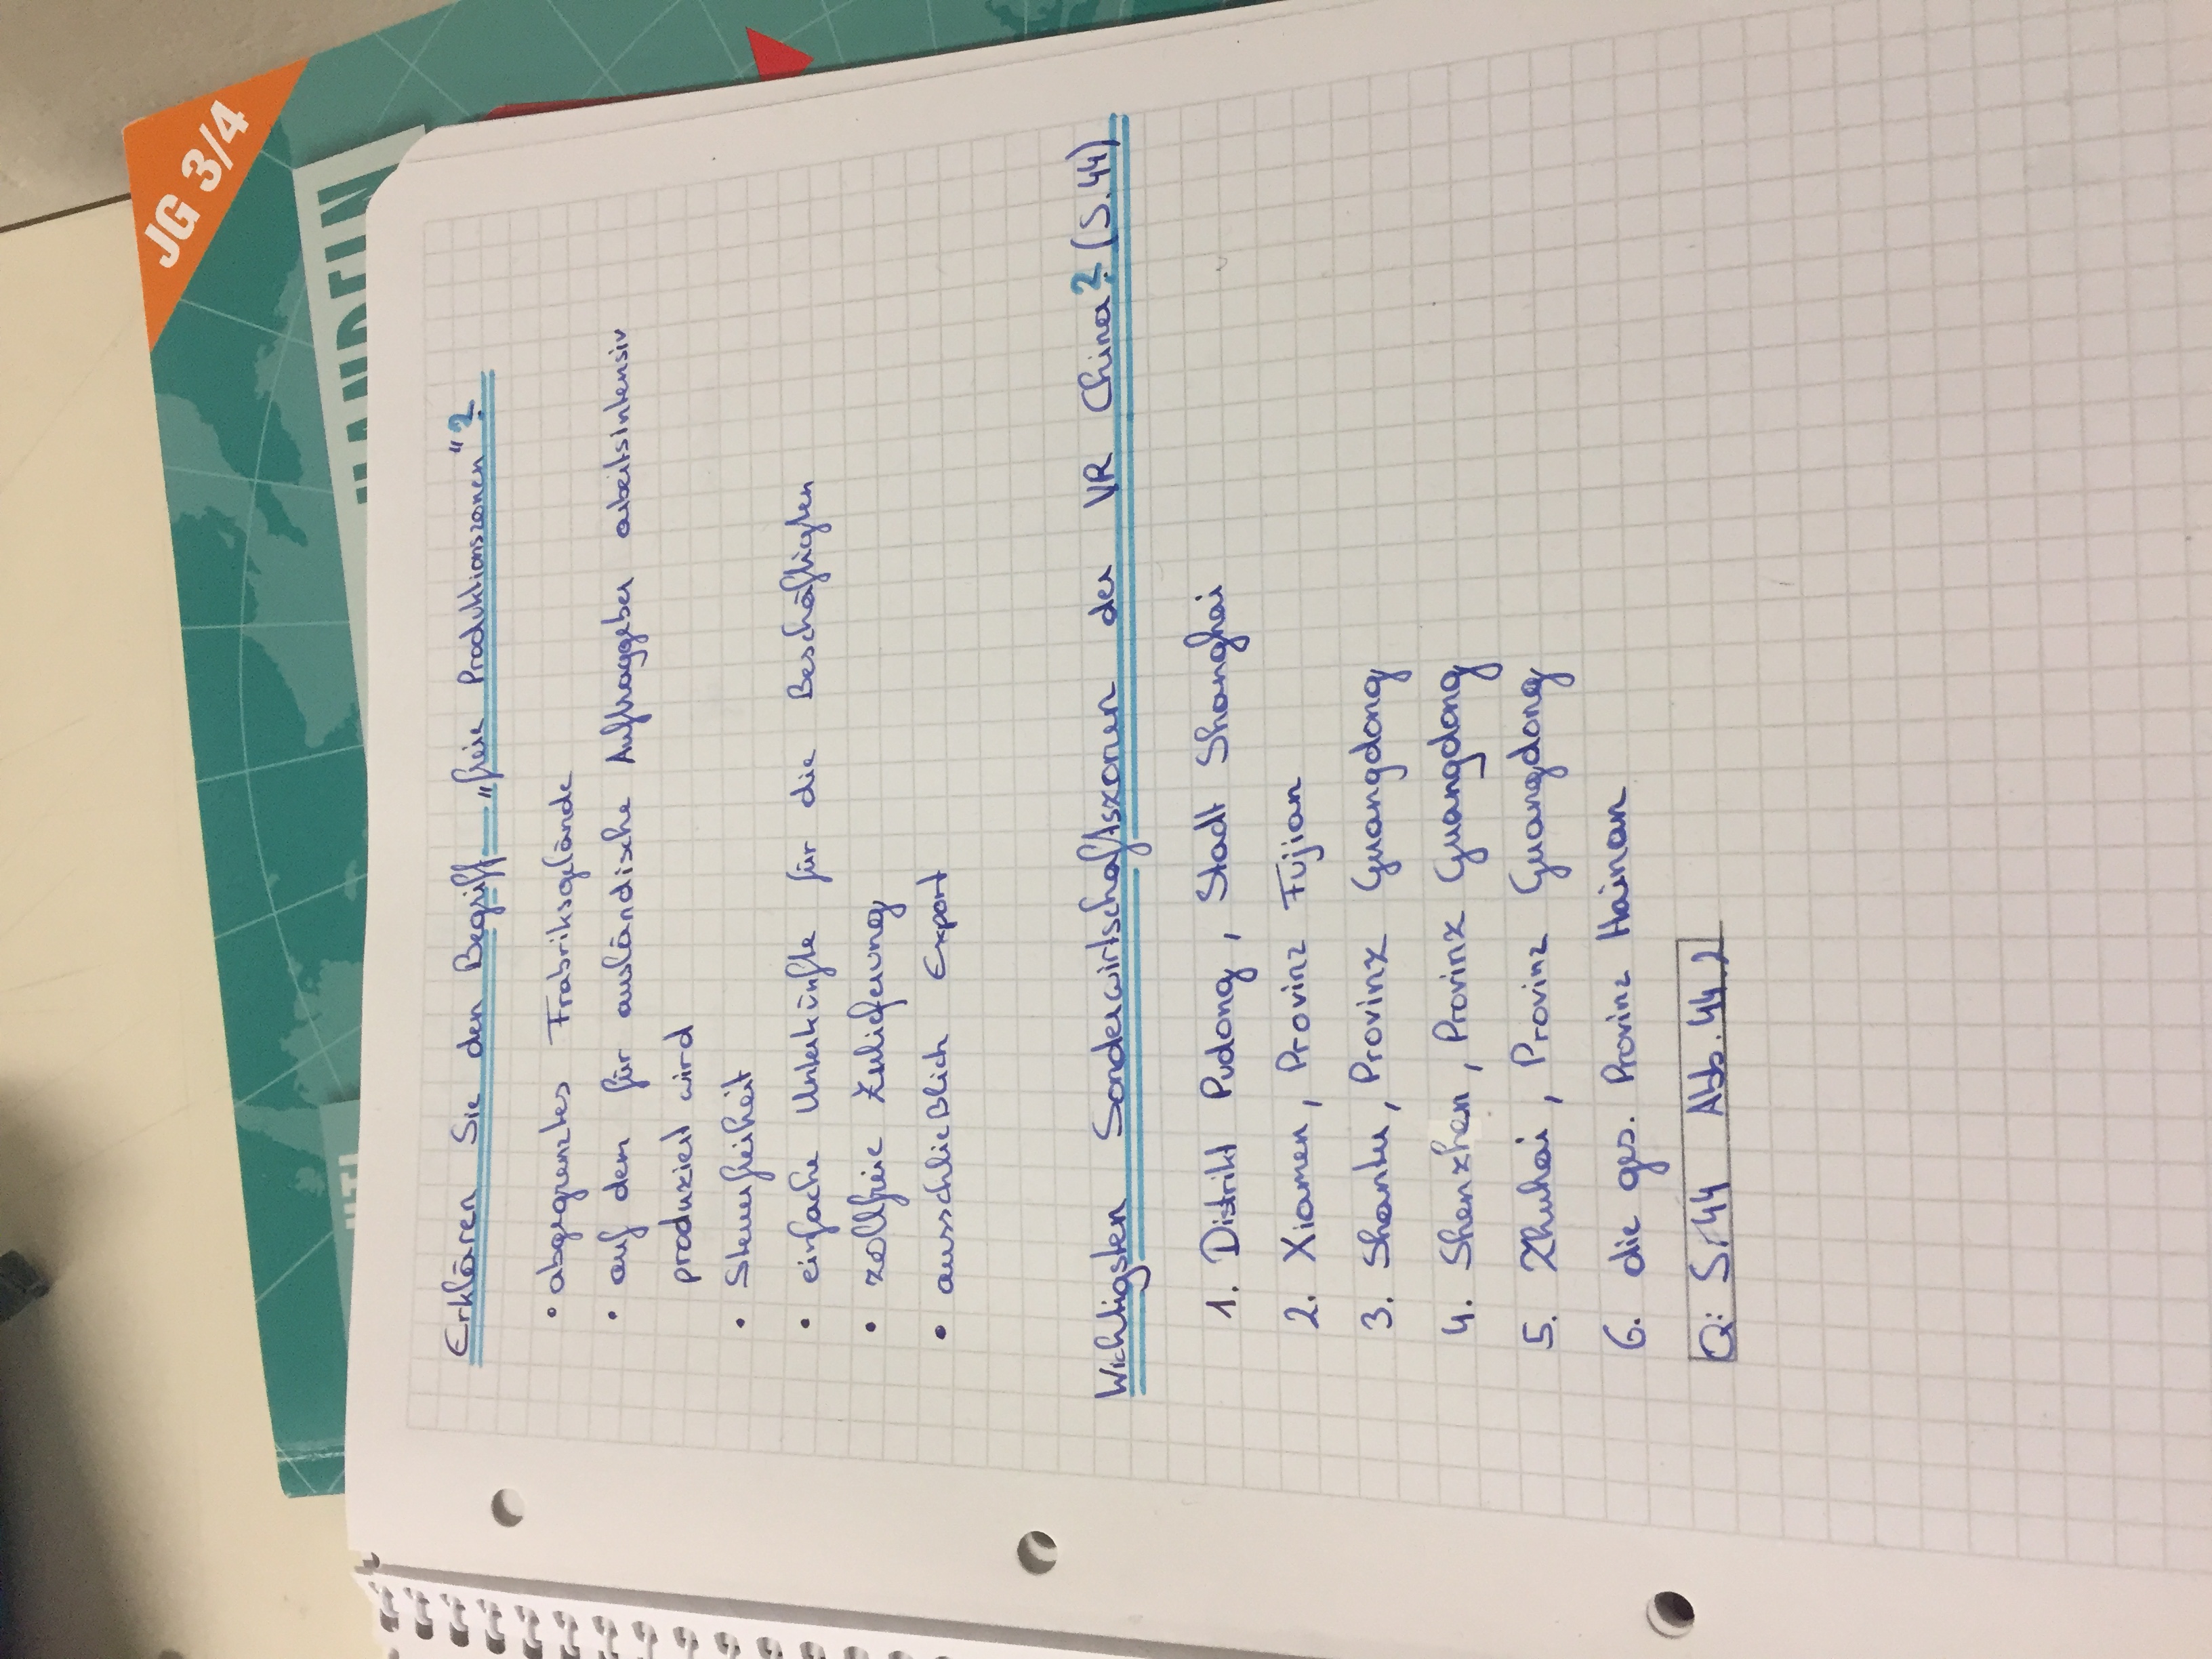 JG 3/4
HANDELN
Erklären Sie den Begriff „freie Produktionszonen"?
• abgegrenztes Frabriksgelände
• auf dem für ausländische Auftraggeber arbeitsintensiv
produziert wird
• Steuerfreiheit
• einfache Unterkünfte für die Beschäftigten
• zollfreie Zulieferung
• ausschließlich Export
Wichtigsten Sonderwirtschaftszonen der VR China? (S. 44)
1. Distrikt Pudong, Stadt Shanghai
2. Xiamen, Provinz Fujian
3. Shantu, Provinz Guangdong
4. Shenzhen, Provinz Guangdong
5. Zhuhai, Provinz Guangdong
6. die ges. Provinz Hainan
Q: S. 44 Abb. 44.2